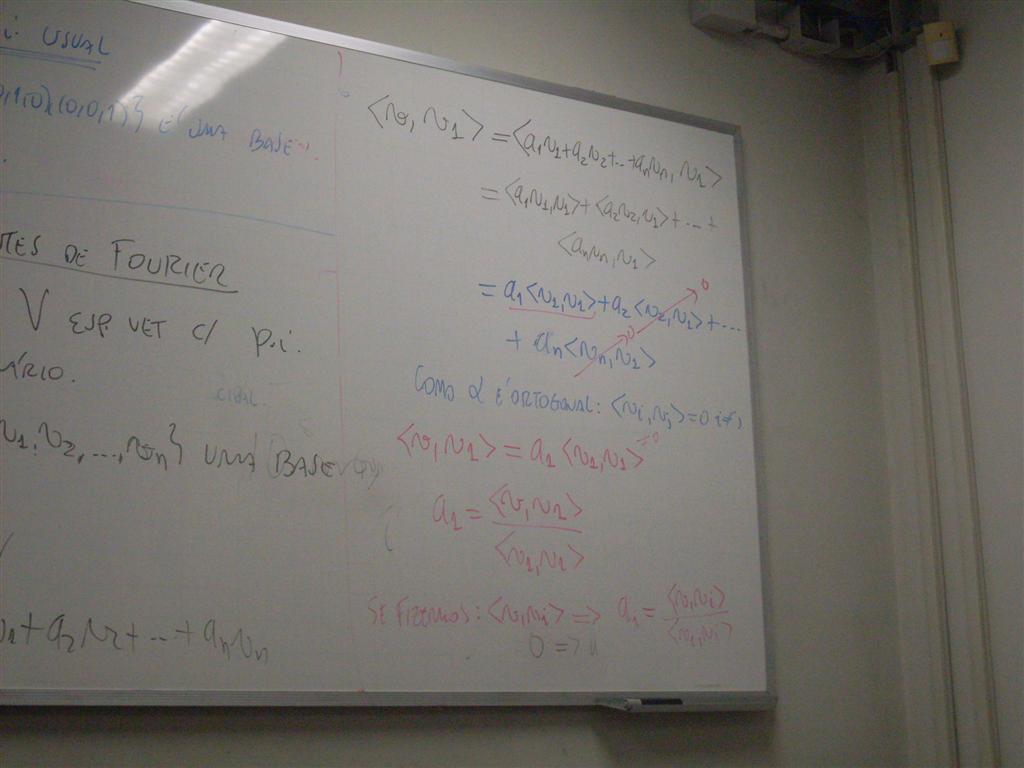 i USUAL
,1,0),(0,0,1)} É UMA BASE
TES DE FOURIER
V ESP. VET C/ p.i.
ÁRIO.
v1, v2, ..., vn} UMA BASE
+ a2 v2 + ... + an vn
⟨v, v1⟩ = ⟨a1v1 + a2v2 + ... + anvn, v1⟩
= ⟨a1v1, v1⟩ + ⟨a2v2, v1⟩ + ... +
⟨anvn, v1⟩
= a1⟨v1, v1⟩ + a2⟨v2, v1⟩ + ... 0
+ an⟨vn, v1⟩ 0
COMO α É ORTOGONAL: ⟨vi, vj⟩ = 0 i≠j
⟨v, v1⟩ = a1 ⟨v1, v1⟩ ≠0
a1 = ⟨v, v1⟩
⟨v1, v1⟩
SE FIZERMOS: ⟨v, vi⟩ => ai = ⟨v, vi⟩
⟨vi, vi⟩